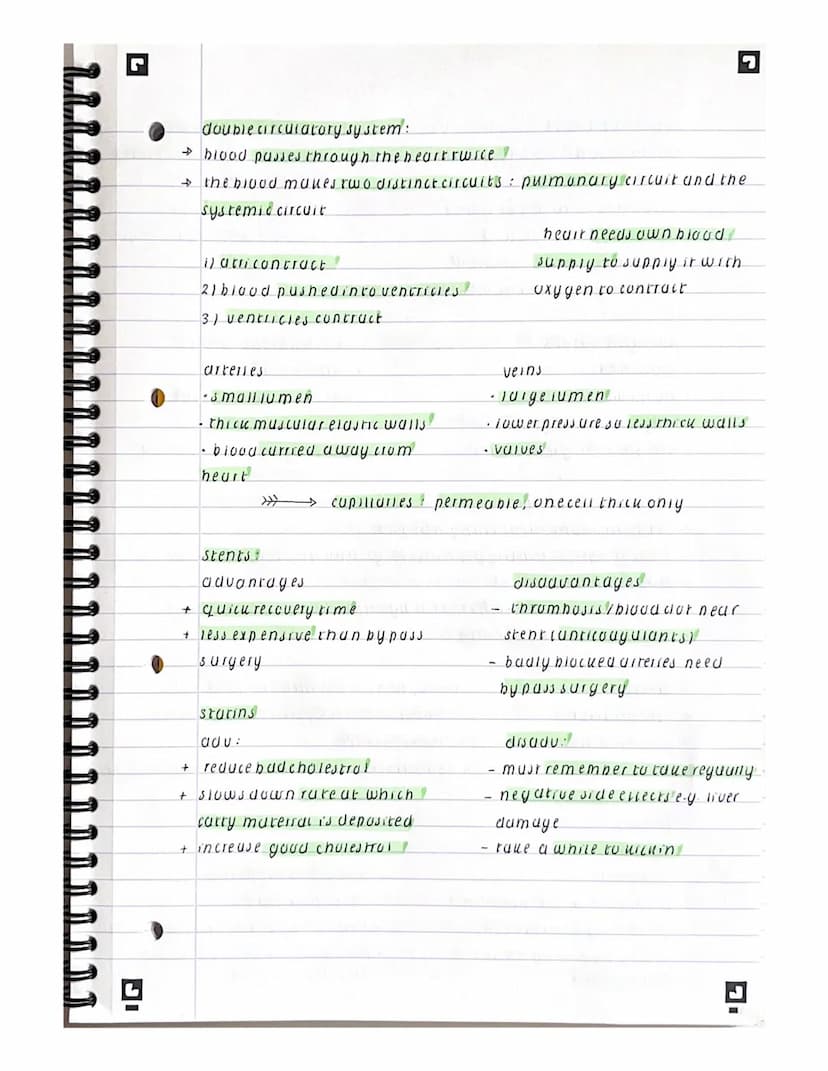 double circulatory system:
→ blood passes through the heart twice
→ the blood makes two distinct circuits : pulmonary circuit and the
systemic circuit
heart needs own blood
supply to supply it with
oxygen to contract
1) atri contract
2) blood pushed into ventricles
3) ventricles contract
arteries
• small lumen
• thick muscular elastic walls
• blood carried away from
heart
veins
• large lumen
• lower pressure so less thick walls
• valves
capillaries : permeable, one cell thick only
stents:
advantages
+ quick recovery time
+ less expensive than bypass
surgery
disadvantages
- thrombosis/blood clot near
stent (anticoagulants)
- badly blocked arteries need
bypass surgery
statins
adv:
+ reduce bad cholestrol
+ slows down rate at which
fatty material is deposited
+ increase good cholestrol
disadv:
- must remember to take regually
- negative side effects e.g liver
damage
- take a while to kick in